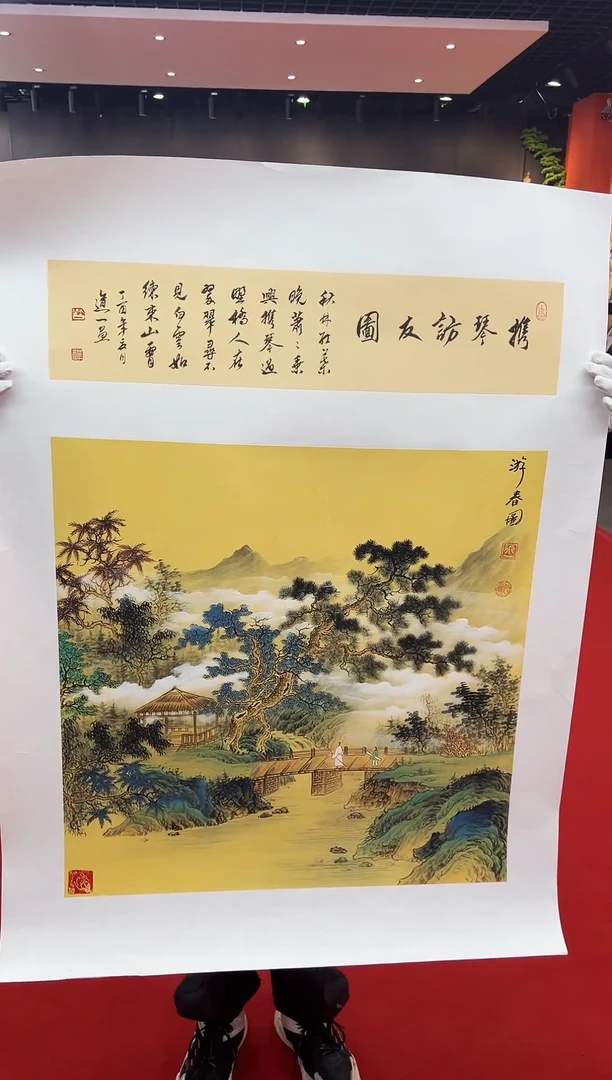 携琴訪友圖
秋林紅葉
晚蕭々乘
興携琴過
野橋人在
翠尋不
見白雲如
練束山
丁酉年五月
道一畫
游春圖